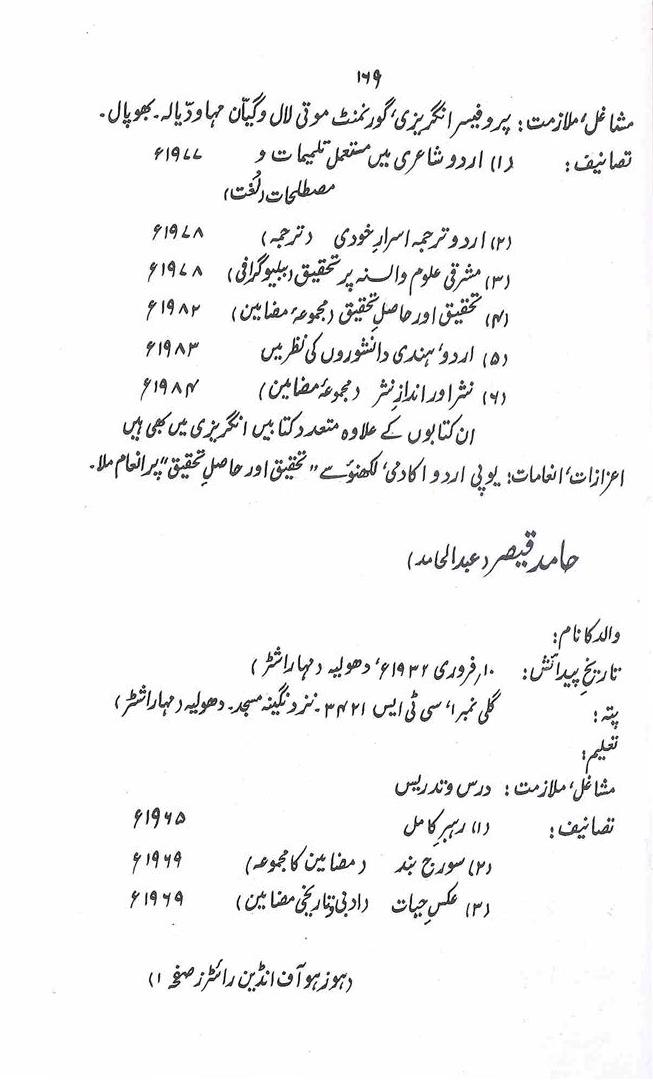 ۱۶۹
مشاغل، ملازمت: پروفیسر انگریزی، گورنمنٹ موتی لال وگیان مہاودیالہ۔ بھوپال۔
تصانیف: (۱) اردو شاعری میں مستعمل تلمیحات و ۱۹۷۷ء
مصطلحات (لُغت)
(۲) اردو ترجمہ اسرارِ خودی (ترجمہ) ۱۹۷۸ء
(۳) مشرقی علوم والسنہ پر تحقیق (ببلیوگرافی) ۱۹۷۸ء
(۴) تحقیق اور حاصلِ تحقیق (مجموعۂ مضامین) ۱۹۸۲ء
(۵) اردو، ہندی دانشوروں کی نظر میں ۱۹۸۳ء
(۶) نثر اور اندازِ نثر (مجموعۂ مضامین) ۱۹۸۴ء
ان کتابوں کے علاوہ متعدد کتابیں انگریزی میں بھی ہیں
اعزازات، انعامات: یوپی اردو اکادمی، لکھنؤ سے "تحقیق اور حاصلِ تحقیق" پر انعام ملا۔
حامد قیصر (عبدالحامد)
والد کا نام:
تاریخِ پیدائش: ۱۰ر فروری ۱۹۳۲ء، دھولیہ (مہاراشٹر)
پتہ: گلی نمبر ۱، سی ٹی ایس ۳۴۲۱۔ نزد نگینہ مسجد۔ دھولیہ (مہاراشٹر)
تعلیم:
مشاغل، ملازمت: درس و تدریس
تصانیف: (۱) رہبرِ کامل ۱۹۶۵ء
(۲) سورج بند (مضامین کا مجموعہ) ۱۹۶۹ء
(۳) عکسِ حیات (ادبی و تاریخی مضامین) ۱۹۶۹ء
(ہوز ہو آف انڈین رائٹرز صفحہ ۱)